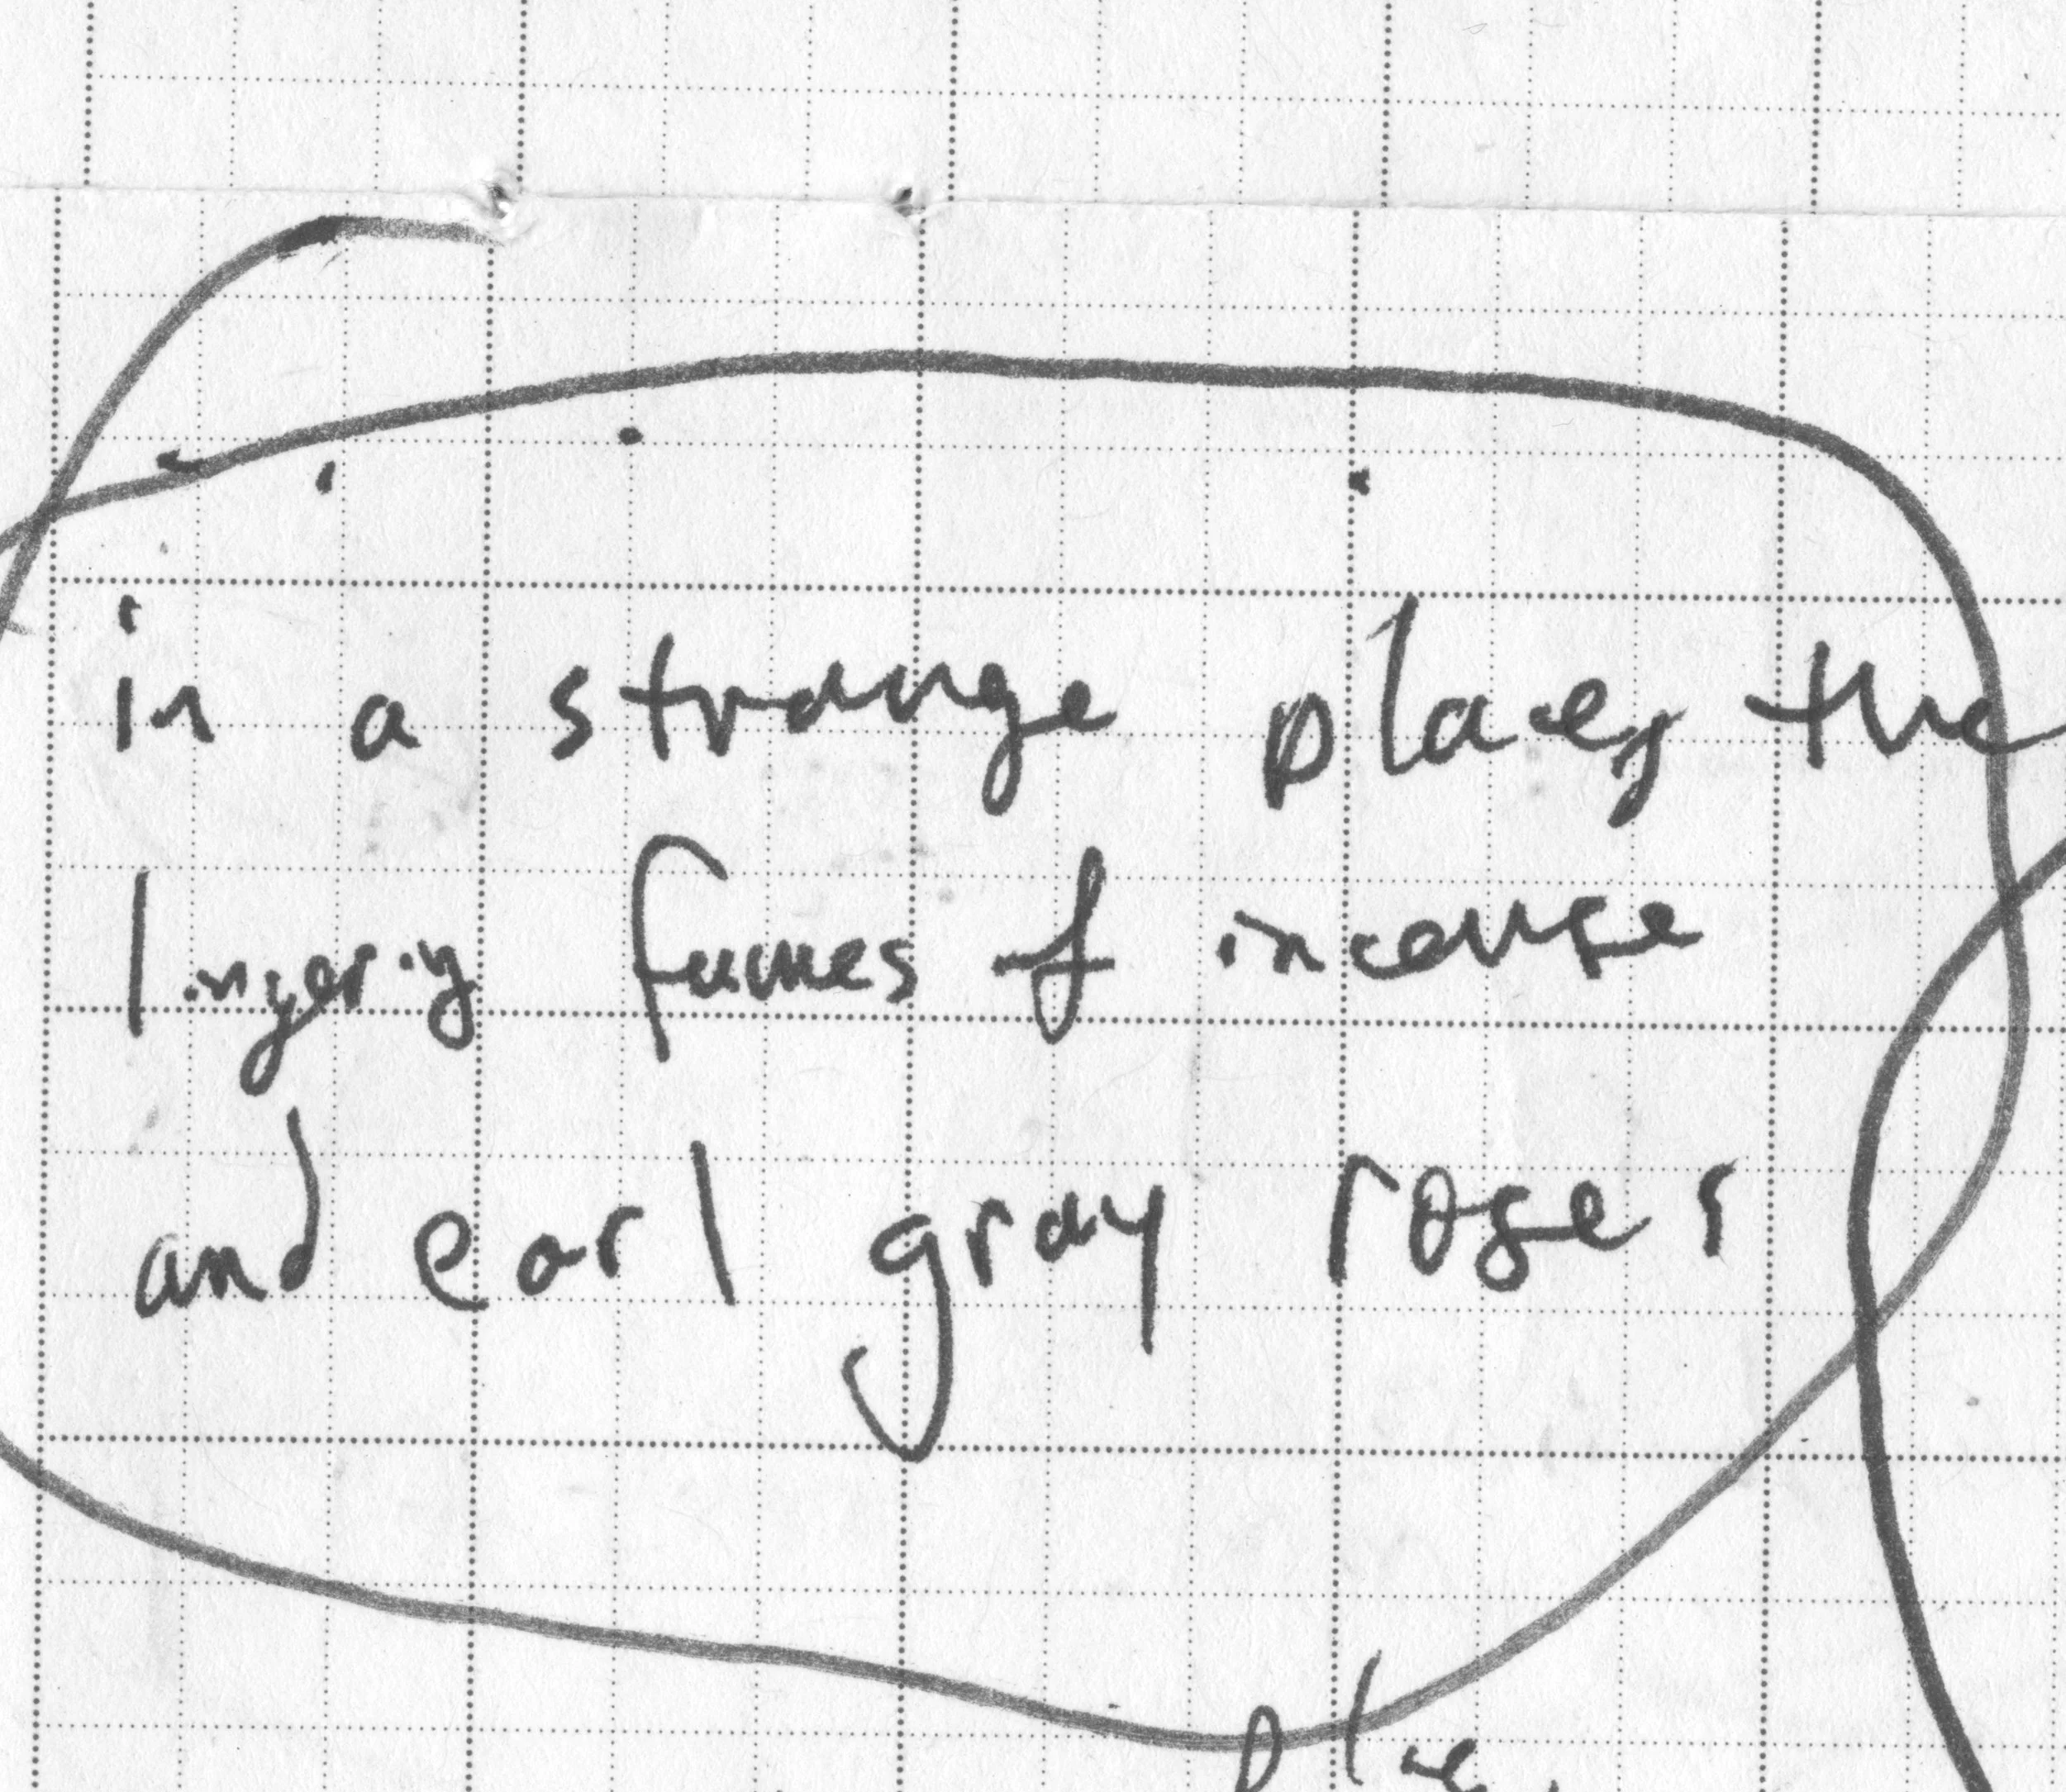 in a strange place, the
lingering fumes of incense
and earl gray roses
place